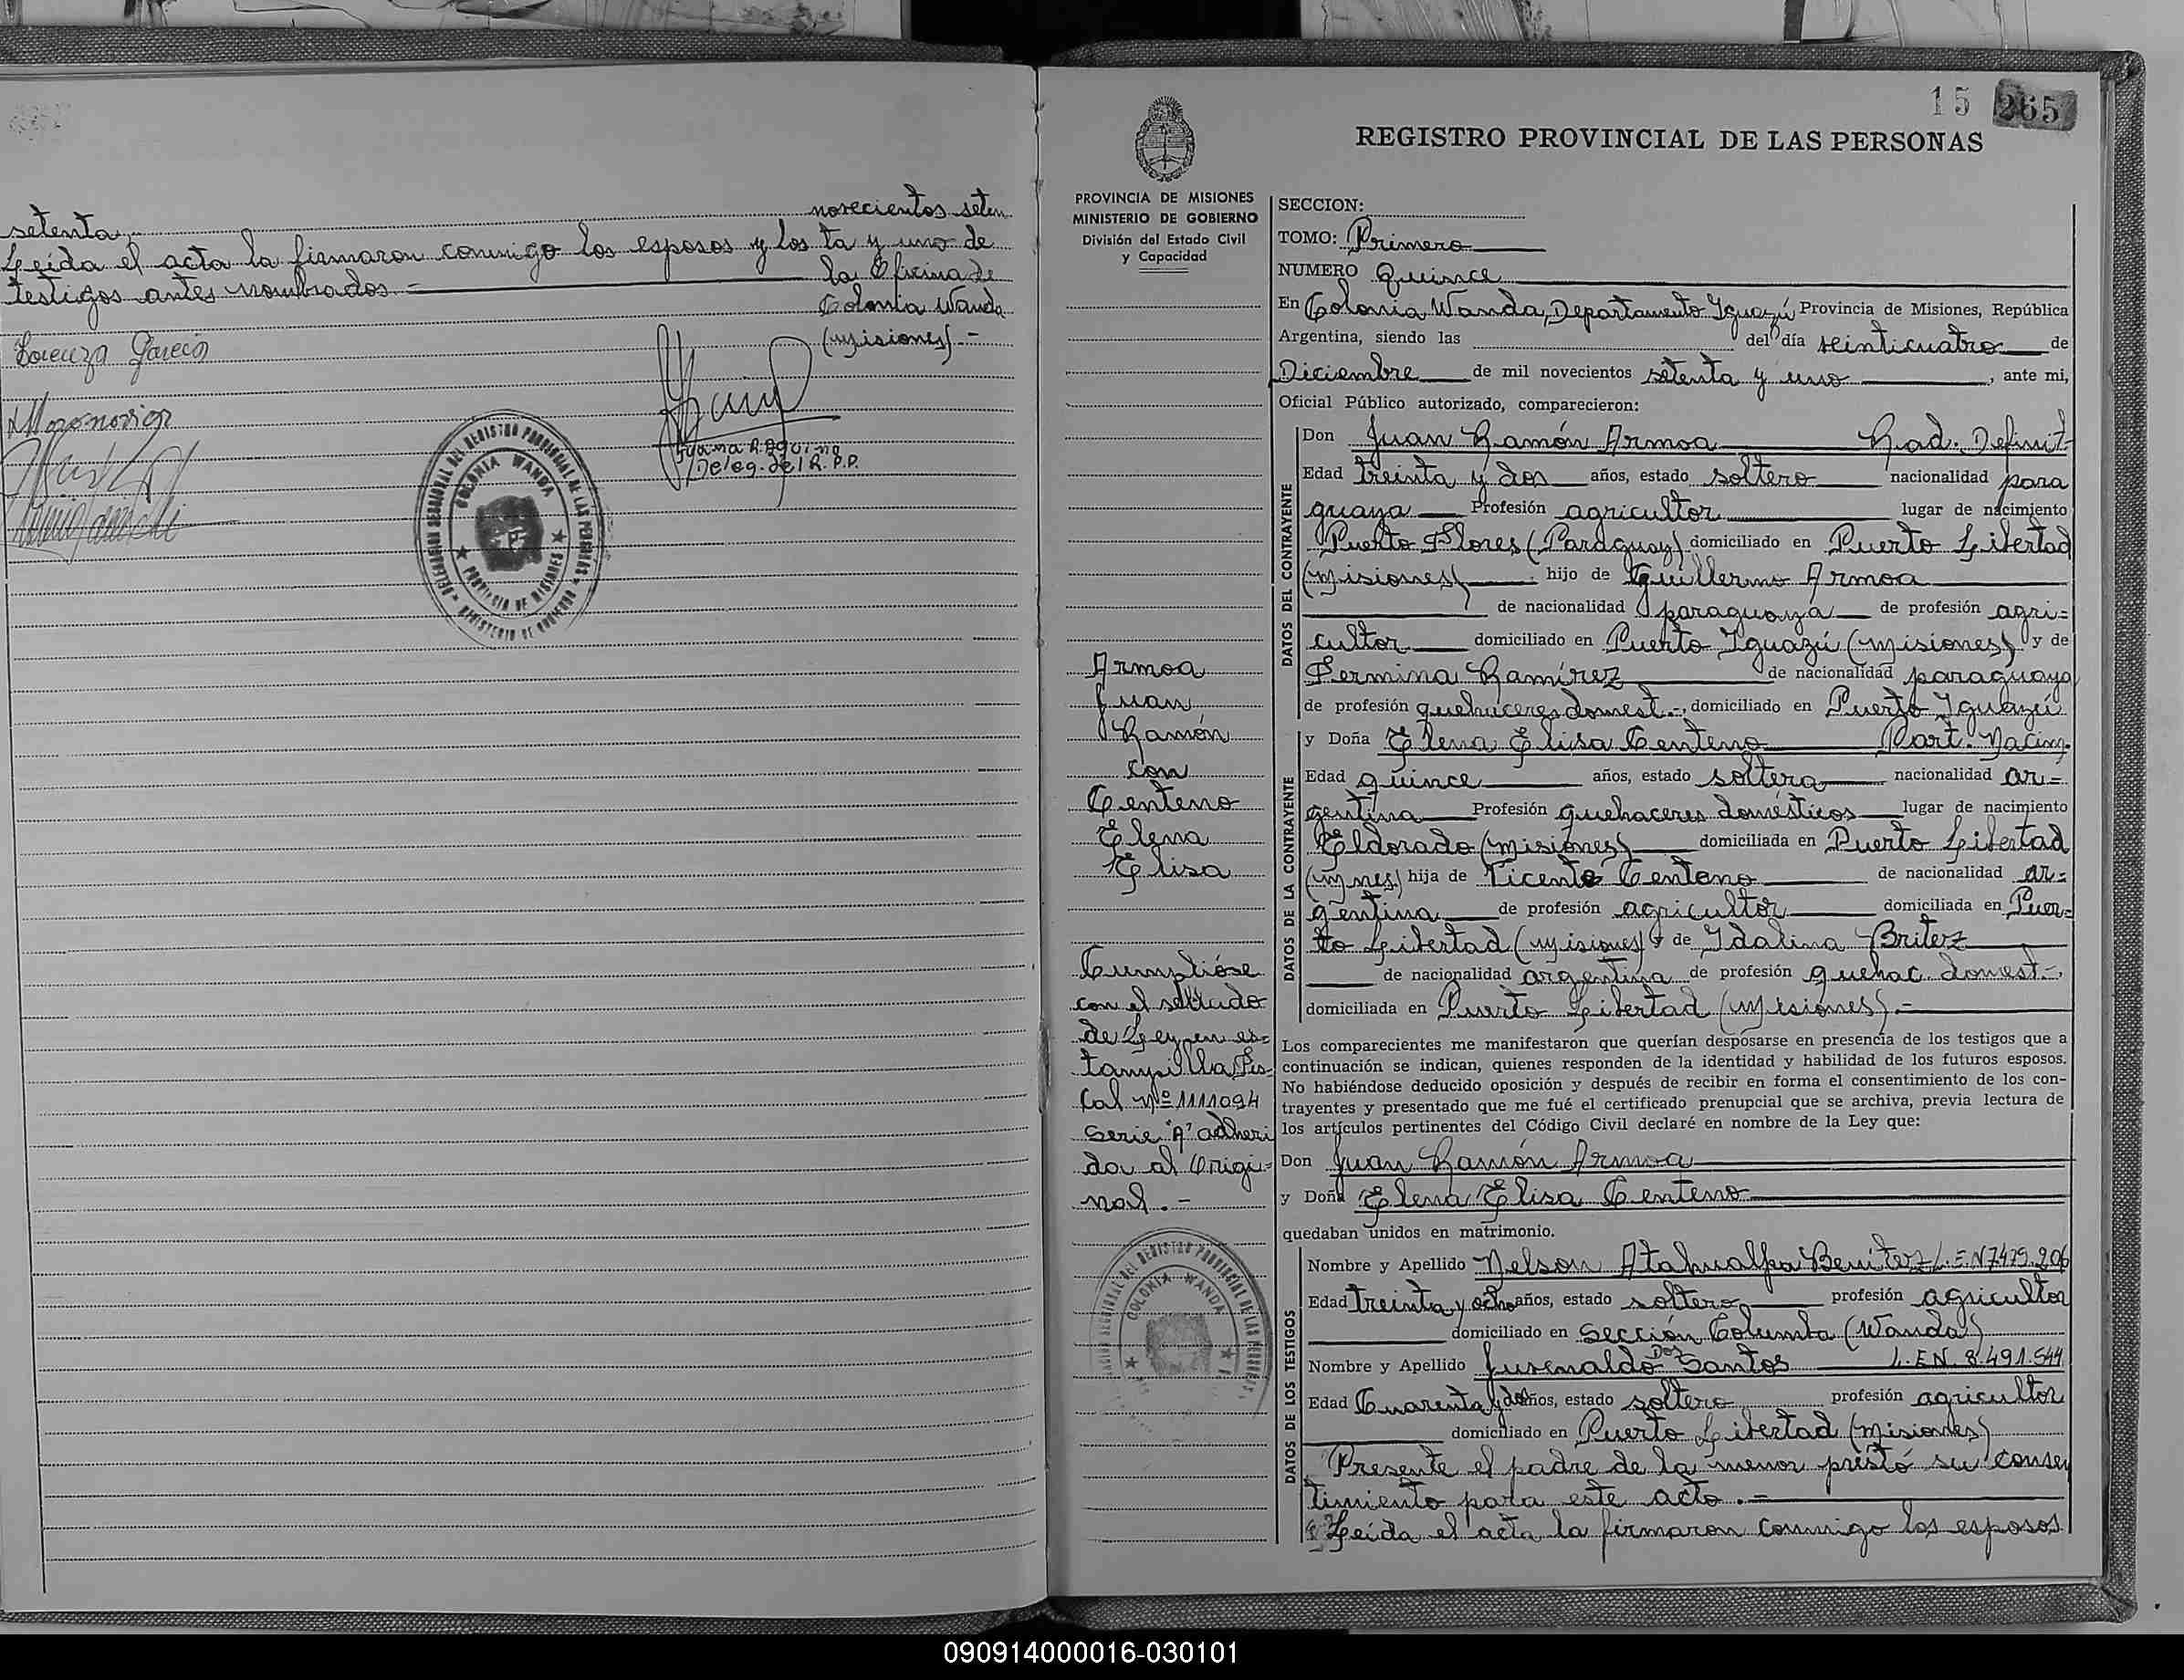 novecientos seten
setenta.
ta y uno de
Leída el acta la firmaron conmigo los esposos y los
la Oficina de
testigos antes nombrados.-
Colonia Wanda
(Misiones).-
Lorenza García
Deleg. del R. P. P.
DELEGACION SECCIONAL DEL REGISTRO PROVINCIAL DE LAS PERSONAS
COLONIA WANDA
PROVINCIA DE MISIONES
MINISTERIO DE GOBIERNO
15 265
REGISTRO PROVINCIAL DE LAS PERSONAS
PROVINCIA DE MISIONES
MINISTERIO DE GOBIERNO
División del Estado Civil
y Capacidad
Armoa
Juan
Ramón
con
Centeno
Elena
Elisa
Cumplióse
con el sellado
de Ley en es=
tampilla Fis-
cal Nº 1111094
Serie "A" adheri
da al Origi=
nal.-
COLONIA WANDA
SECCION:
TOMO: Primero
NUMERO Quince
En Colonia Wanda, Departamento Iguazú Provincia de Misiones, República
Argentina, siendo las del día veinticuatro de
Diciembre de mil novecientos setenta y uno, ante mi,
Oficial Público autorizado, comparecieron:
DATOS DEL CONTRAYENTE
Don Juan Ramón Armoa Rad. Definit-
Edad treinta y dos años, estado soltero nacionalidad para
guaya Profesión agricultor lugar de nacimiento
Puerto Flores (Paraguay) domiciliado en Puerto Libertad
(Misiones) hijo de Guillermo Armoa
de nacionalidad paraguaya de profesión agri=
cultor domiciliado en Puerto Iguazú (Misiones) y de
Fermina Ramírez de nacionalidad paraguaya
de profesión quehaceres domest.-, domiciliado en Puerto Iguazú
DATOS DE LA CONTRAYENTE
y Doña Elena Elisa Centeno Part. Nacim.
Edad quince años, estado soltera nacionalidad ar=
gentina Profesión quehaceres domésticos lugar de nacimiento
Eldorado (Misiones) domiciliada en Puerto Libertad
(Mnes) hija de Vicente Centeno de nacionalidad ar=
gentina de profesión agricultor domiciliada en Puer=
to Libertad (Misiones) y de Idalina Britez
de nacionalidad argentina de profesión quehac. domest-,
domiciliada en Puerto Libertad (Misiones).-
Los comparecientes me manifestaron que querían desposarse en presencia de los testigos que a
continuación se indican, quienes responden de la identidad y habilidad de los futuros esposos.
No habiéndose deducido oposición y después de recibir en forma el consentimiento de los con-
trayentes y presentado que me fué el certificado prenupcial que se archiva, previa lectura de
los artículos pertinentes del Código Civil declaré en nombre de la Ley que:
Don Juan Ramón Armoa
y Doña Elena Elisa Centeno
quedaban unidos en matrimonio.
DATOS DE LOS TESTIGOS
Nombre y Apellido Nelson Atahualpa Benitez L.E.N 7.479.206
Edad treinta y ocho años, estado soltero profesión agricultor
domiciliado en Sección Columba (Wanda)
Nombre y Apellido Juvenaldo Dos Santos L.E.N. 8.491.544
Edad Cuarenta y dos años, estado soltero profesión agricultor
domiciliado en Puerto Libertad (Misiones)
Presente el padre de la menor prestó su consen
timiento para este acto.-
Leída el acta la firmaron conmigo los esposos
090914000016-030101